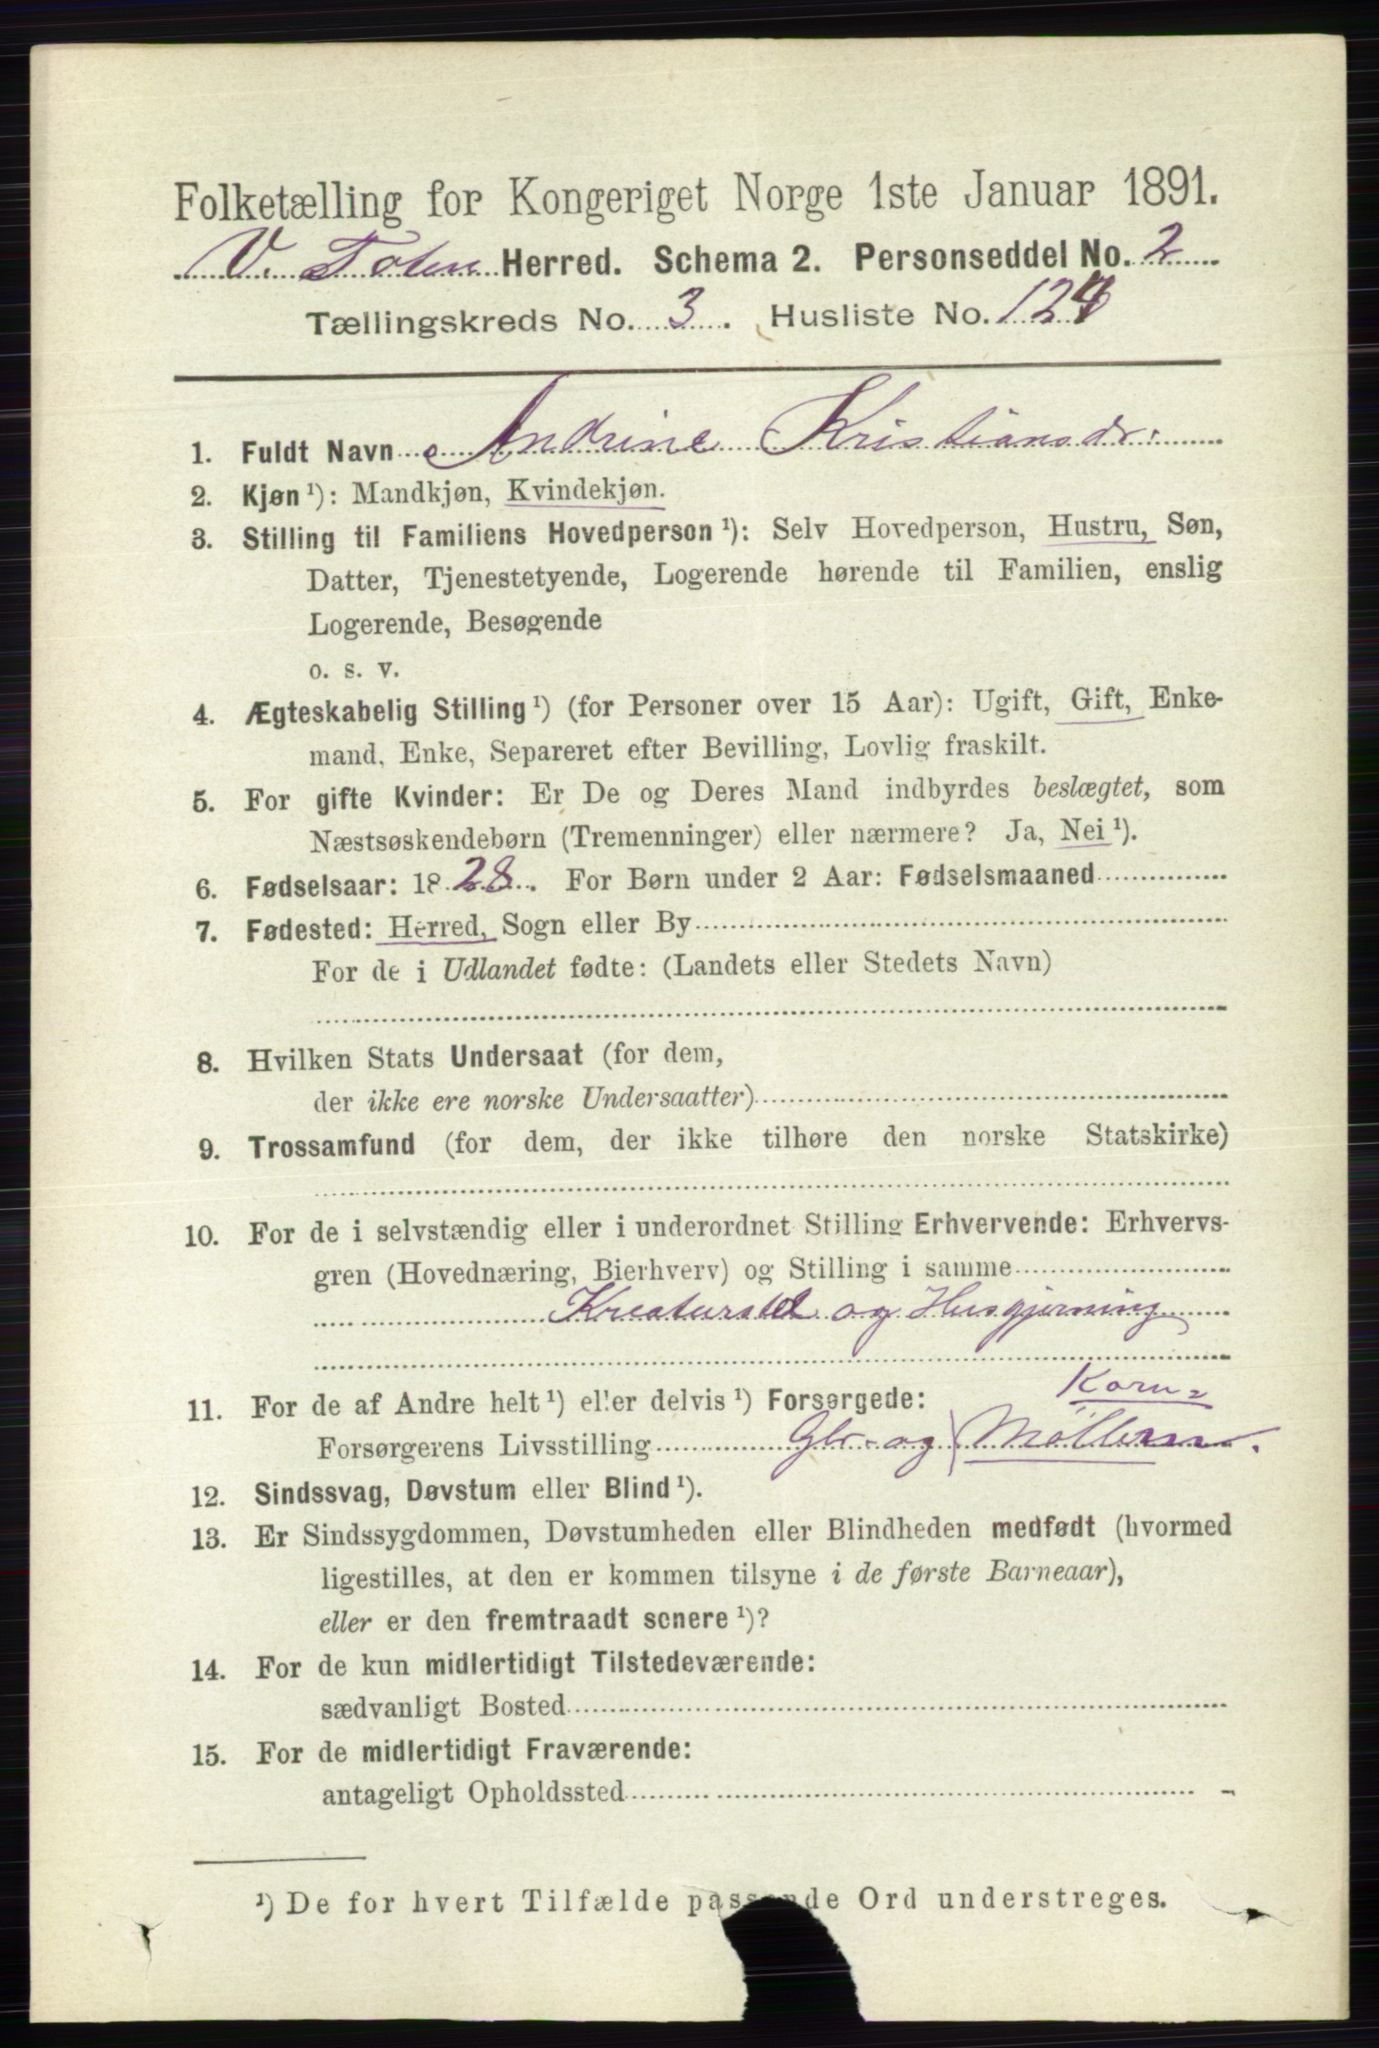 Folketælling for Kongeriget Norge 1ste Januar 1891.
V. Toten Herred. Schema 2. Personseddel No. 2
Tællingskreds No. 3. Husliste No. 124
1. Fuldt Navn Andrine Kristiansdr.
2. Kjøn ¹): Mandkjøn, Kvindekjøn.
3. Stilling til Familiens Hovedperson ¹): Selv Hovedperson, Hustru, Søn,
Datter, Tjenestetyende, Logerende hørende til Familien, enslig
Logerende, Besøgende
o. s. v.
4. Ægteskabelig Stilling ¹) (for Personer over 15 Aar): Ugift, Gift, Enke-
mand, Enke, Separeret efter Bevilling, Lovlig fraskilt.
5. For gifte Kvinder: Er De og Deres Mand indbyrdes beslægtet, som
Næstsøskendebørn (Tremenninger) eller nærmere? Ja, Nei ¹).
6. Fødselsaar: 1828. For Børn under 2 Aar: Fødselsmaaned
7. Fødested: Herred, Sogn eller By
For de i Udlandet fødte: (Landets eller Stedets Navn)
8. Hvilken Stats Undersaat (for dem,
der ikke ere norske Undersaatter)
9. Trossamfund (for dem, der ikke tilhøre den norske Statskirke)
10. For de i selvstændig eller i underordnet Stilling Erhvervende: Erhvervs-
gren (Hovednæring, Bierhverv) og Stilling i samme
Kreaturstel og Husgjerning
11. For de af Andre helt ¹) eller delvis ¹) Forsørgede: Korn-
Forsørgerens Livsstilling Gbr. og Møller
12. Sindssvag, Døvstum eller Blind ¹).
13. Er Sindssygdommen, Døvstumheden eller Blindheden medfødt (hvormed
ligestilles, at den er kommen tilsyne i de første Barneaar),
eller er den fremtraadt senere ¹)?
14. For de kun midlertidigt Tilstedeværende:
sædvanligt Bosted
15. For de midlertidigt Fraværende:
antageligt Opholdssted
¹) De for hvert Tilfælde passende Ord understreges.